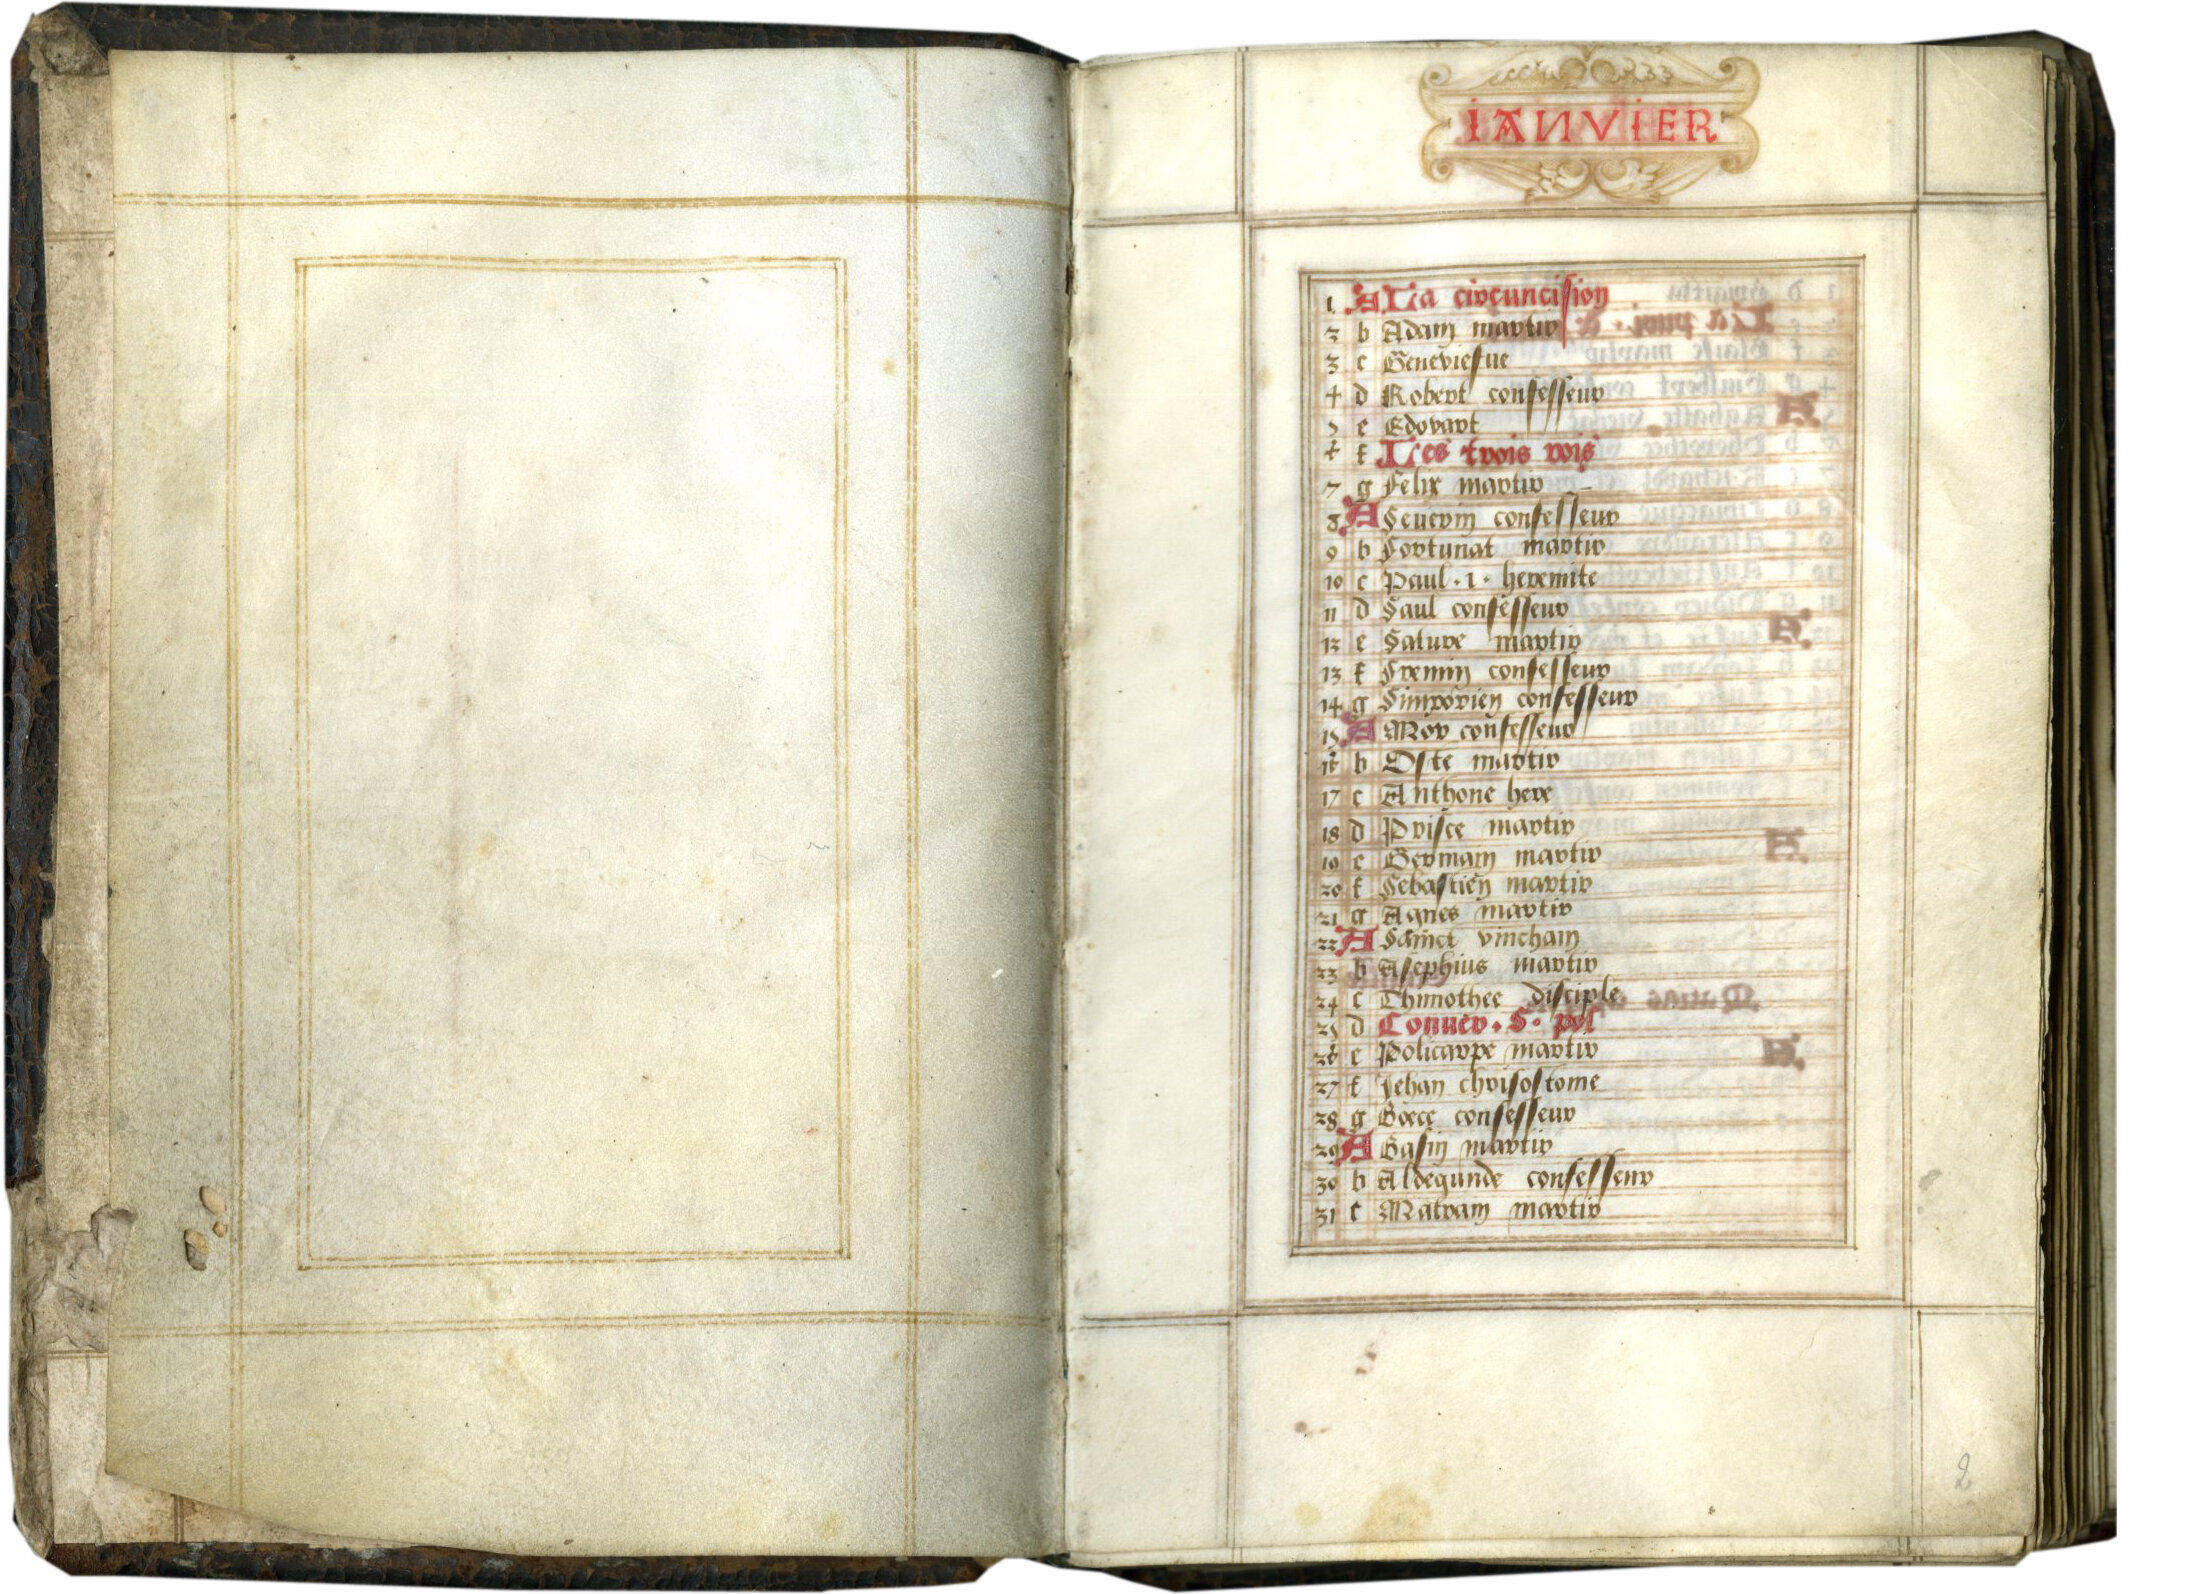 IANVIER
1 A La circuncision
2 b Adam martir
3 c Geneviesue
4 d Robert confesseur
5 e Edovart
6 f Les trois rois
7 g Felix martir
8 A Severin confesseur
9 b Fortunat martir
10 c Paul · 1 · heremite
11 d Saul confesseur
12 e Sature martir
13 f Fremin confesseur
14 g confesseur
15 A Mor confesseur
16 b Oste martir
17 c Anthone here
18 d Prisce martir
19 e Germain martir
20 f Sebastien martir
21 g Agnes martir
22 A Sainct vincham
23 b Asephius martir
24 c Thimothee disciple
25 d Conuer · S · pol
26 e Policarpe martir
27 f Jehan chrisostome
28 g Boece confesseur
29 A Basin martir
30 b Aldegunde confesseur
31 c Matram martir
2